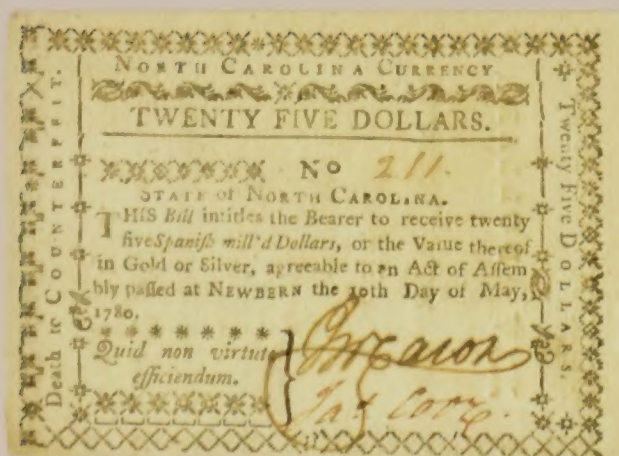 NORTH CAROLINA CURRENCY
TWENTY FIVE DOLLARS.
No 211.
STATE of NORTH CAROLINA.
THIS Bill intitles the Bearer to receive twenty
five Spaniſh mill'd Dollars, or the Value thereof
in Gold or Silver, agreeable to an Act of Aſſem
bly paſſed at NEWBERN the 10th Day of May,
1780.
Quid non virtute
efficiendum.
Death to COUNTERFEIT.
Twenty Five DOLLARS.